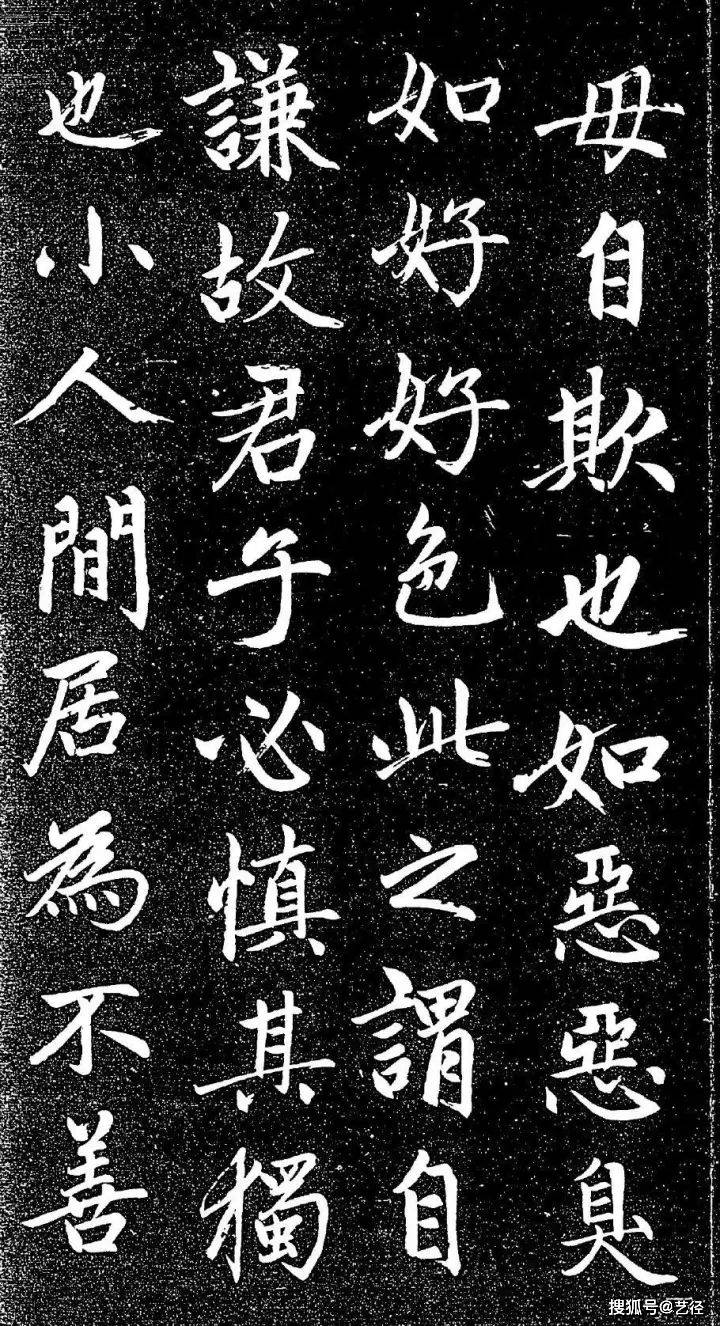 毋自欺也如惡惡臭
如好好色此之謂自
謙故君子必慎其獨
也小人閒居為不善
搜狐号@艺径